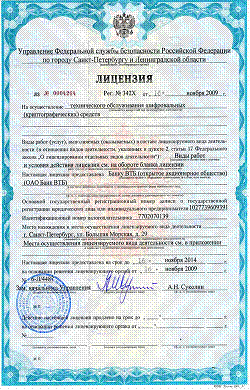 Управление Федеральной службы безопасности Российской Федерации
по городу Санкт-Петербургу и Ленинградской области
ЛИЦЕНЗИЯ
№ 0004264 Рег. № 342Х от 10 ноября 2009 г.
На осуществление технического обслуживания шифровальных
(криптографических) средств
Виды работ (услуг), выполняемых (оказываемых) в составе лицензируемого вида деятель-
ности (в отношении видов деятельности, указанных в пункте 2 статьи 17 Федерального
закона „О лицензировании отдельных видов деятельности“): Виды работ
и условия действия лицензии см. на обороте бланка лицензии
Настоящая лицензия предоставлена Банку ВТБ (открытое акционерное общество)
(ОАО Банк ВТБ)
Основной государственный регистрационный номер записи о государственной
регистрации юридического лица или индивидуального предпринимателя 1027739609391
Идентификационный номер налогоплательщика 7702070139
Место нахождения и места осуществления лицензируемого вида деятельности
г. Санкт-Петербург, ул. Большая Морская, д. 29
Места осуществления лицензируемого вида деятельности см. в приложении
Настоящая лицензия предоставлена на срок до 10 ноября 2014
на основании решения лицензирующего органа от 10 ноября 2009
Зам. начальника Управления А.Н. Суколин
Действие настоящей лицензии продлено на срок до
на основании решения лицензирующего органа от